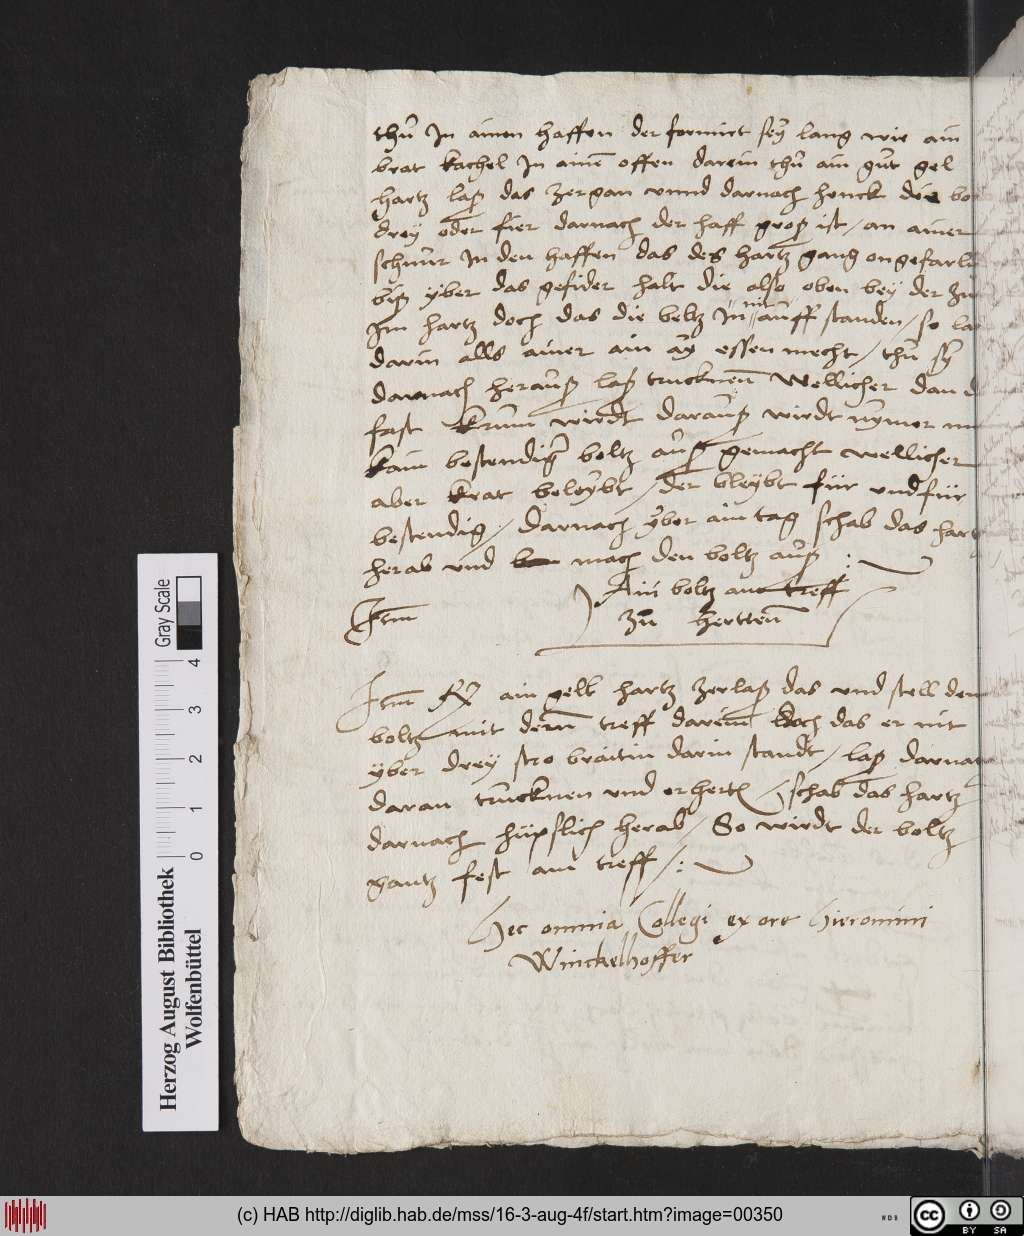 thů In ainen haffen der formirt seÿ lang wie ain
brat kachel In ainē offen darein thů ain gůt gel
hartz laß das zergan unnd darnach henck die
dreÿ oder fier darnach der haff groß ist / an ainer
schnůr In den haffen das des hartz gang ongefarlich
biß ÿber das gefider halt die also oben beÿ der
Im hartz doch das die beltz In nit auff standen / so
darin alls ainer ain aÿ essen mecht / thů sÿ
darnach heraůß laß trucknen Wellicher dan
fast krum wirdt daraůß wirdt nÿmer
kain bestendiger boltz aůß gemacht wellicher
aber krat beleÿbt / der bleÿbt für und für
bestendig / darnach ÿber ain tag schab das hartz
herab und mach den boltz aůß :
Ain boltz am treff
Item
zů hertten
Item ain gelb hartz zerlaß das und stell den
boltz mit dem treff darein doch das er nit
ÿber dreÿ stro braitin darin standt / laß darnach
daran trucknen und erherten / schab das hartz
darnach hüpslich herab / So wirdt der boltz
gantz fest am treff / :
Hec omnia Collegi ex ore Hieronimi
Winckelhoffer
Herzog August Bibliothek
Wolfenbüttel
0 1 2 3 4
Gray Scale
(c) HAB http://diglib.hab.de/mss/16-3-aug-4f/start.htm?image=00350
WDB
cc BY SA